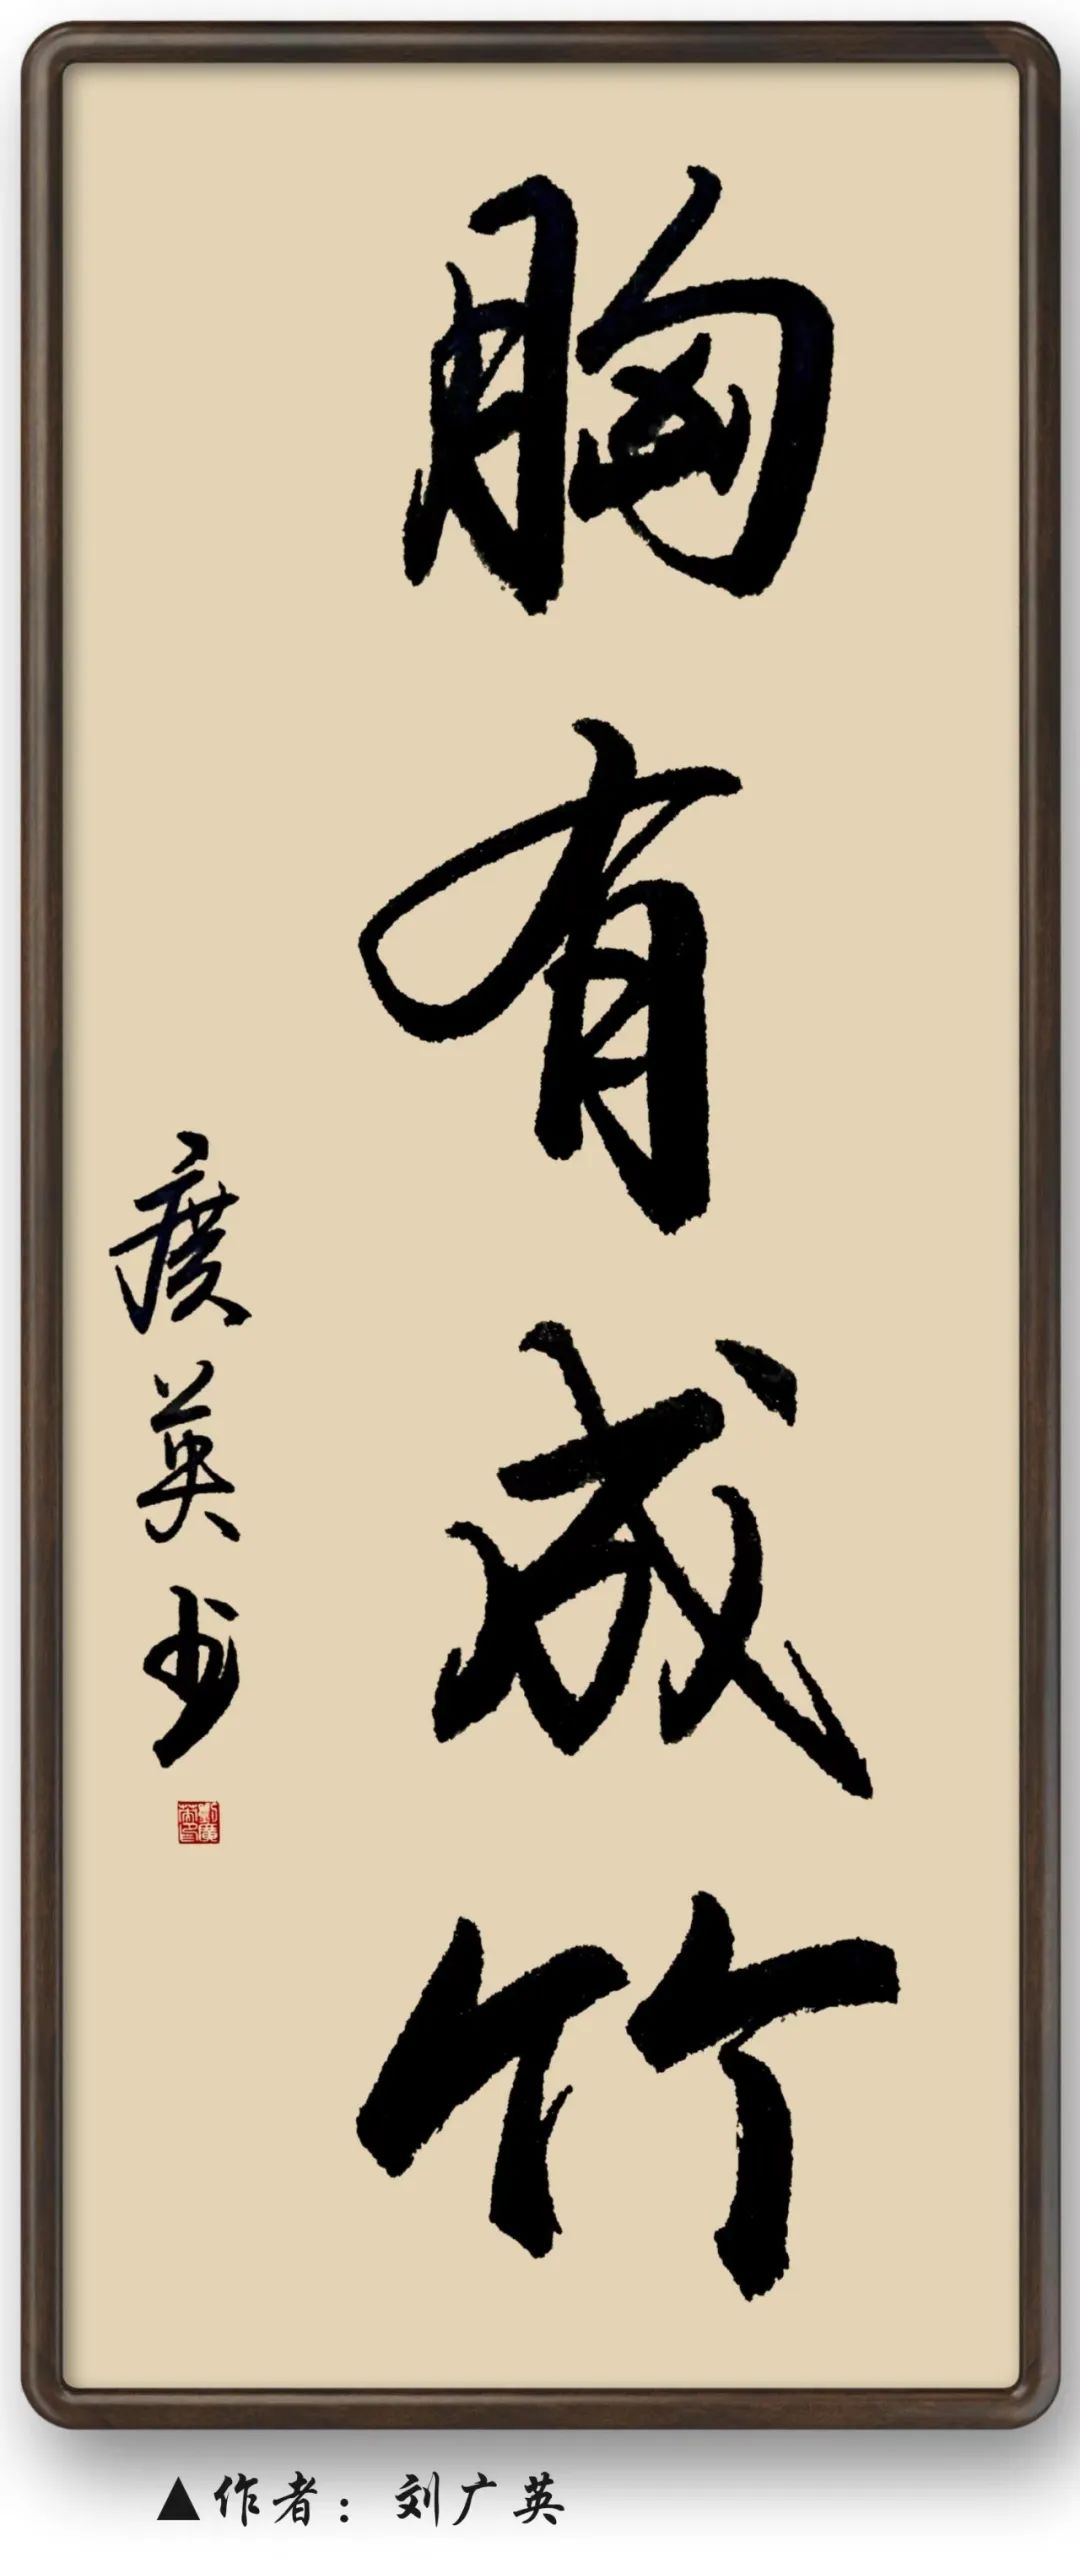 胸有成竹
廣英书
▲作者：刘广英